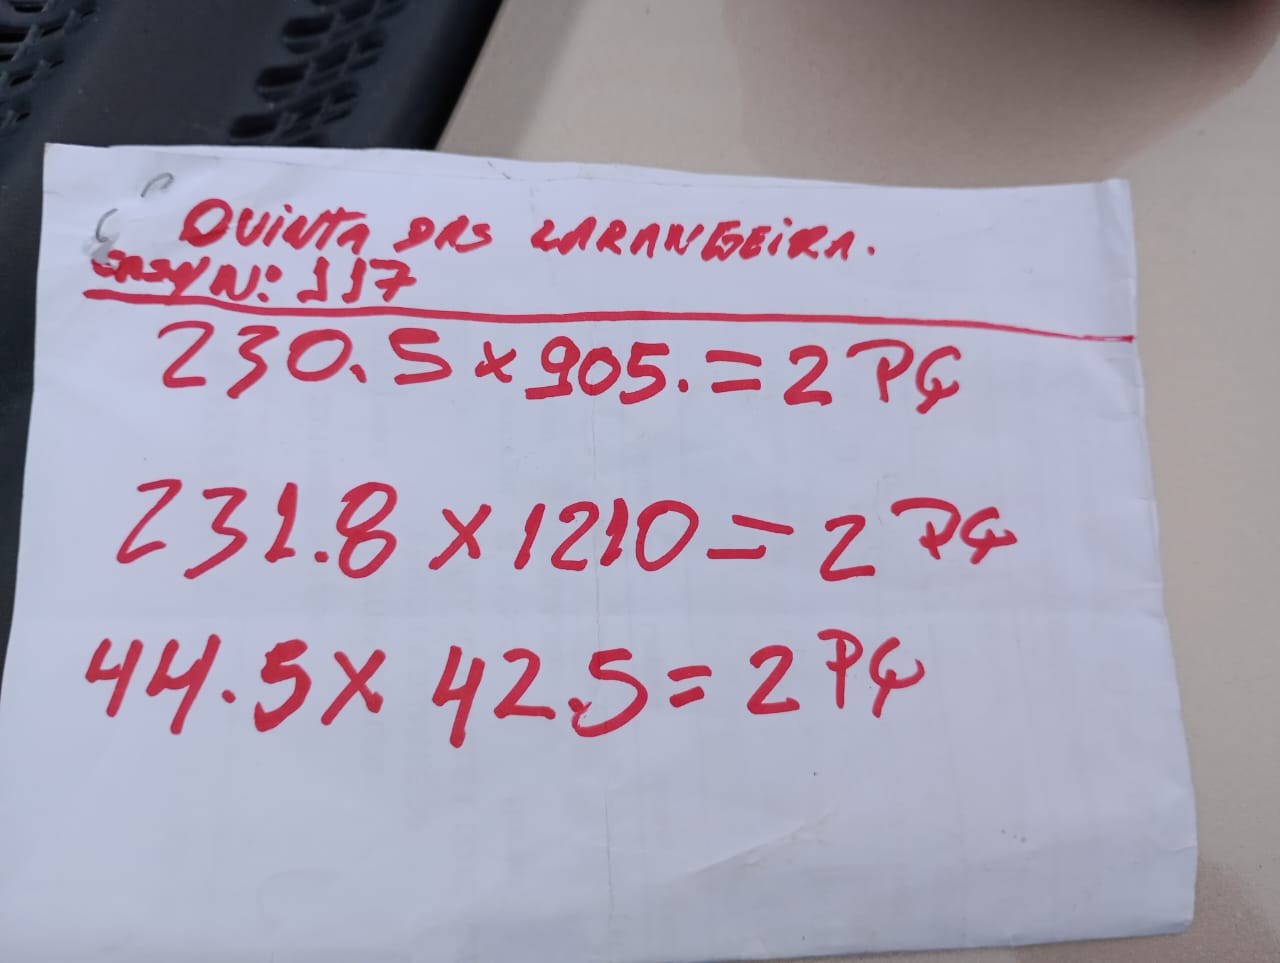 QUINTA DAS LARANGEIRA.
CASA Nº: 117
230.5 x 905. = 2 PÇ
231.8 x 1210 = 2 PÇ
44.5 x 42.5 = 2 PÇ